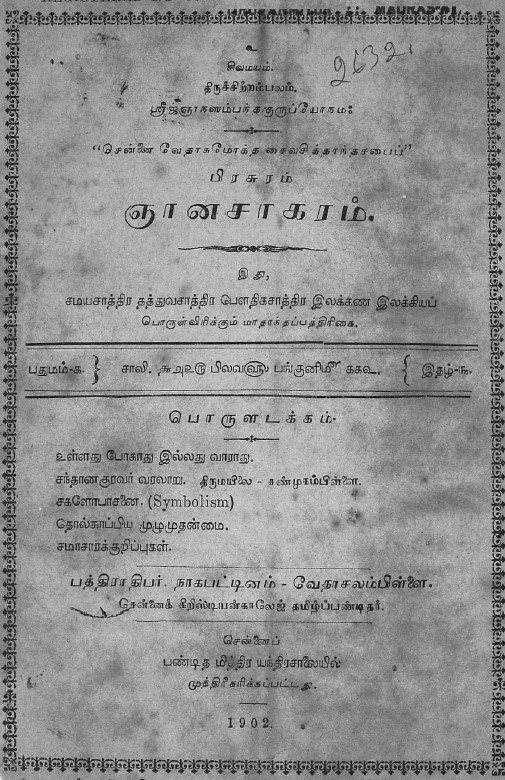 உ
சிவமயம்.
திருச்சிற்றம்பலம்.
ஸ்ரீஜ்ஞாநஸம்பந்தகுருப்யோநம:
"சென்னை வேதாகமோக்த சைவசித்தாந்தசபைப்"
பிரசுரம்
ஞானசாகரம்.
இது,
சமயசாத்திர தத்துவசாத்திர பௌதிகசாத்திர இலக்கண இலக்கியப்
பொருள்விரிக்கும் மாதாந்தப்பத்திரிகை.
பதுமம்-க. } சாலி. பிலவ௵ பங்குனி௴ { இதழ்-௩.
பொருளடக்கம்.
உள்ளது போகாது இல்லது வாராது.
சந்தானகுரவர் வரலாறு. திருமயிலை - சண்முகம்பிள்ளை.
சகளோபாசனை. (Symbolism)
தொல்காப்பிய முழுமுதன்மை.
சமாசாரக்குறிப்புகள்.
பத்திராதிபர். நாகபட்டினம் - வேதாசலம்பிள்ளை.
சென்னைக் கிறிஸ்டியன்காலேஜ் தமிழ்ப்பண்டிதர்.
சென்னைப்
பண்டித மித்திர யந்திரசாலையில்
முத்திரீகரிக்கப்பட்டது.
1902.